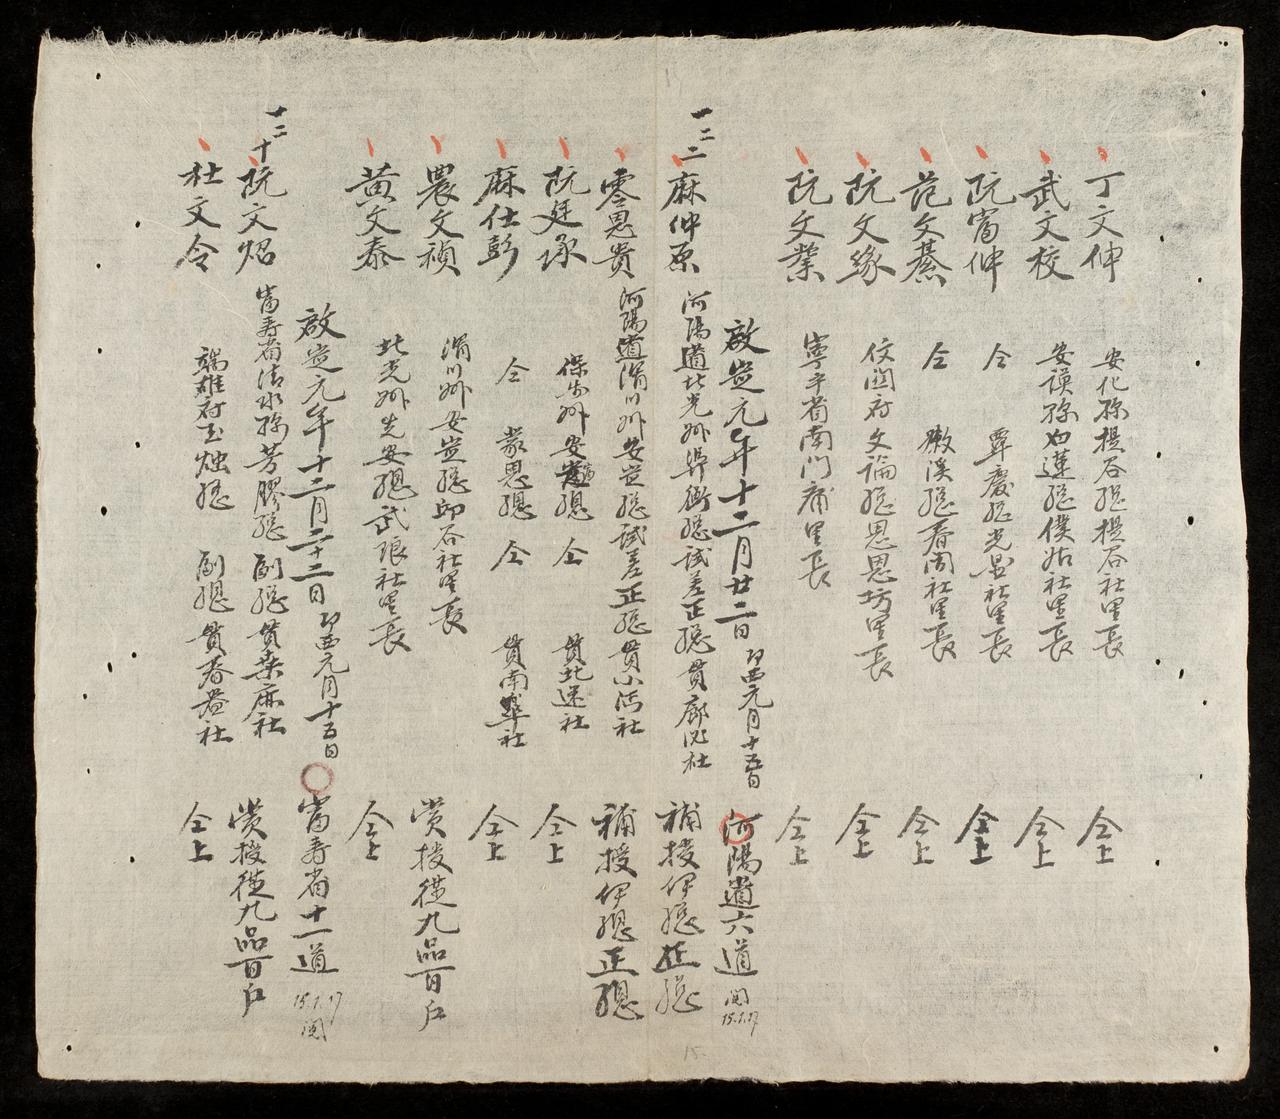 丁文伸 安化縣提谷總提谷社里長 仝上
武文校 安謨縣白蓮總僕姑社里長 仝上
阮富伸 仝 覃慶總光 社里長 仝上
范文 仝 嫩溪總春 社里長 仝上
阮文緣 仗 府文論總恩恩坊里長 仝上
阮文業 寧平省南門庯里長 仝上
啟定元年十二月廿二日 卯西元月十五日 河陽道六道 閱 15.1.17
一二二 麻仲原 河陽道北光州 總試差正總貫 社 補授伊總正總
零恩貴 河陽道渭川州安定總試差正總貫小河社 補授伊總正總
阮廷承 保 州安富總 仝 貫北 社 仝上
麻仕彭 仝 蒙恩總 仝 貫南 社 仝上
農文禎 渭川州安定總 谷社里長 賞授從九品百户
黄文泰 北光州先安總武 社里長 仝上
啟定元年十二月二十二日 卯西元月十五日 富寿省十一道 15.1.17 閱
十二十 阮文炤 富寿省清水縣芳膠總 副總 貫桑麻社 賞授從九品百户
杜文令 端雄府玉燭總 副總 貫春 社 仝上
15